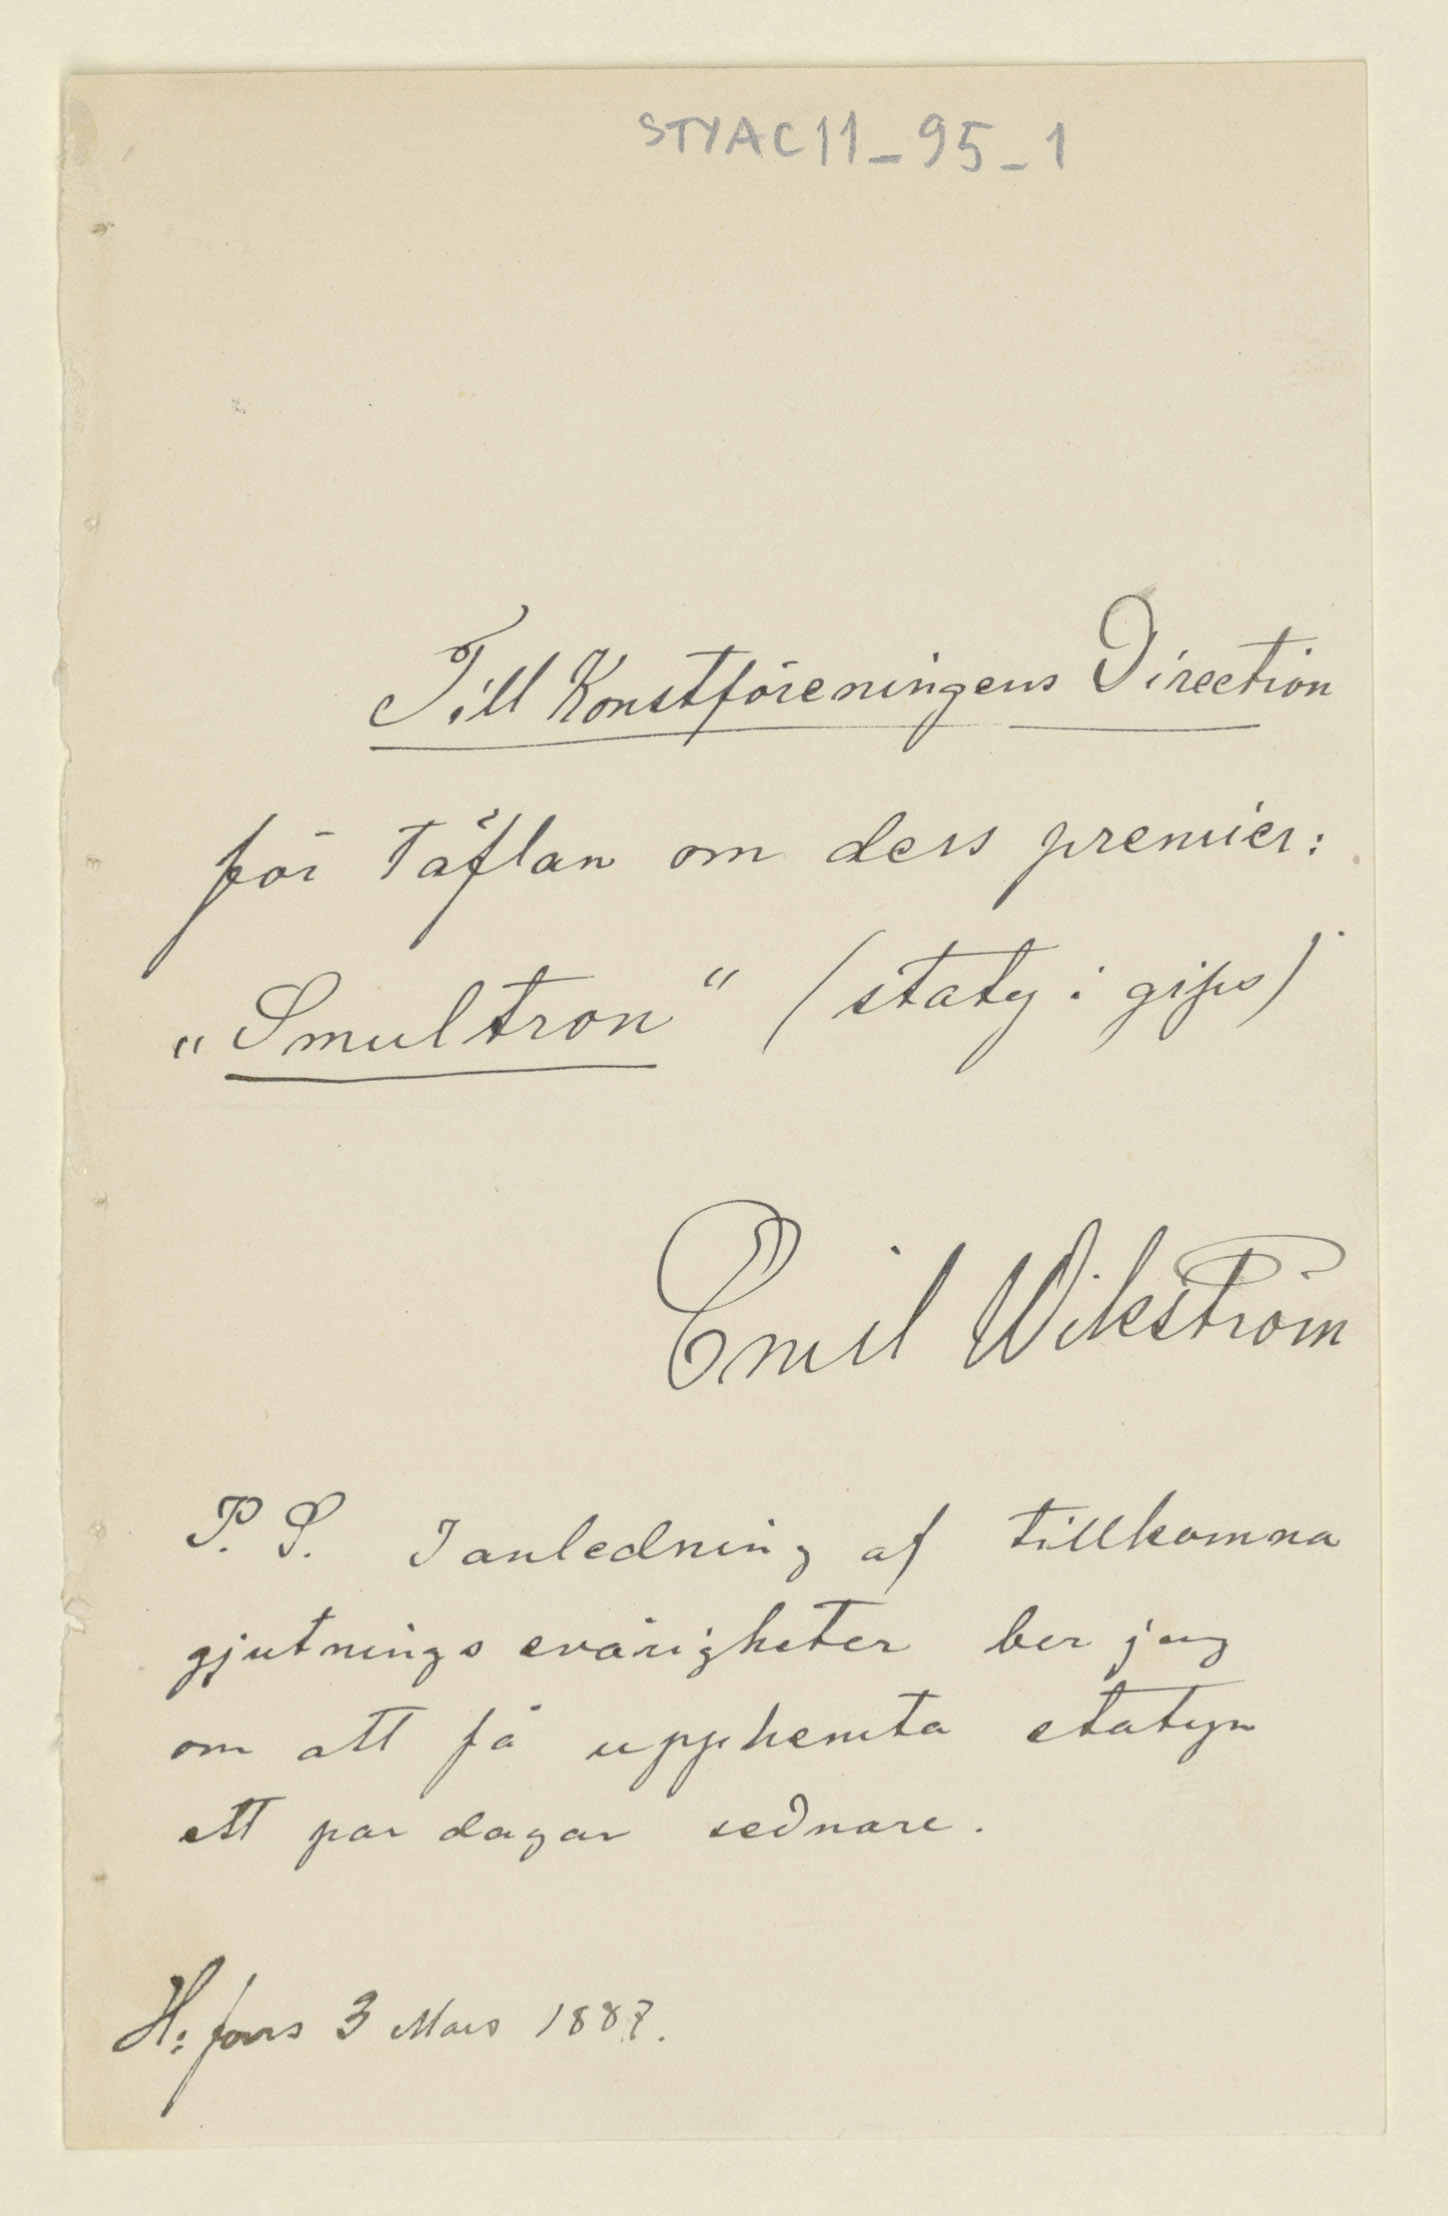 STYAC11_95_1
Till Konstföreningens Direction
för täflan om dess premier:
„Smultron“ (staty i gips)
Emil Wikström
P. S. I anledning af tillkomna
gjutnings svårigheter ber jag
om att få upphemta statyn
ett par dagar sednare.
H:fors 3 Mars 1887.